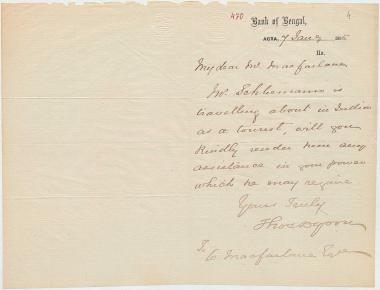 470 4
Bank of Bengal,
AGRA, 7 Jany
No.
My dear Mr. Macfarlane
Mr Schliemann is
travelling about in India
as a tourist, will you
kindly render him any
assistance in your power
which he may require
Yours Truly
To
C. Macfarlane Esqre